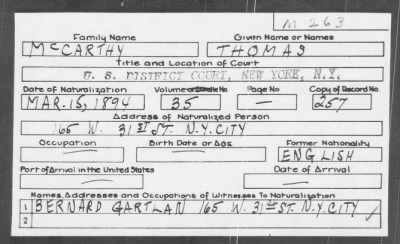 M 263
Family Name Given Name or Names
McCARTHY THOMAS
Title and Location of Court
U. S. DISTRICT COURT, NEW YORK, N.Y.
Date of Naturalization Volume or Bundle No. Page No Copy of Record No.
MAR. 15, 1894 35 — 257
Address of Naturalized Person
165 W. 31ST ST. N.Y. CITY
Occupation Birth Date or Age Former Nationality
ENGLISH
Port of Arrival in the United States Date of Arrival
Names, Addresses and Occupations of Witnesses To Naturalization
1 BERNARD GARTLAN 165 W. 31ST ST. N.Y. CITY
2